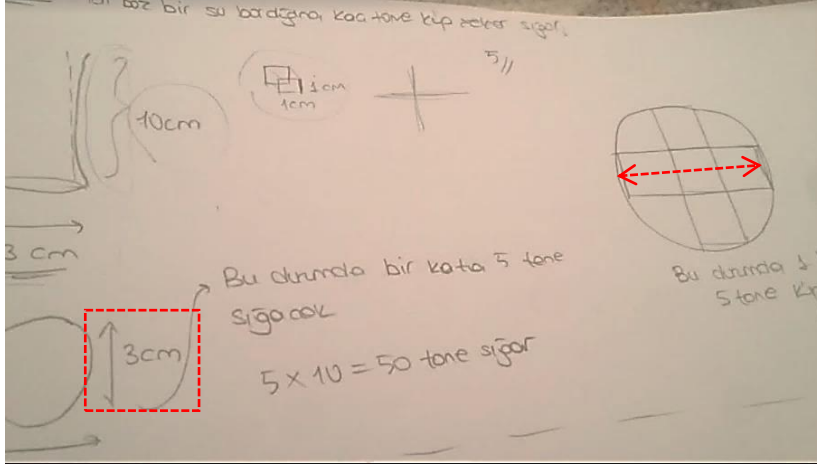 boz bir su bardağına kaç tane küp şeker sığar.
5//
10cm
1cm
1cm
3 cm
Bu durumda bir kata 5 tane
sığacak
3cm
5 x 10 = 50 tane sığar
Bu durumda 1
5 tane